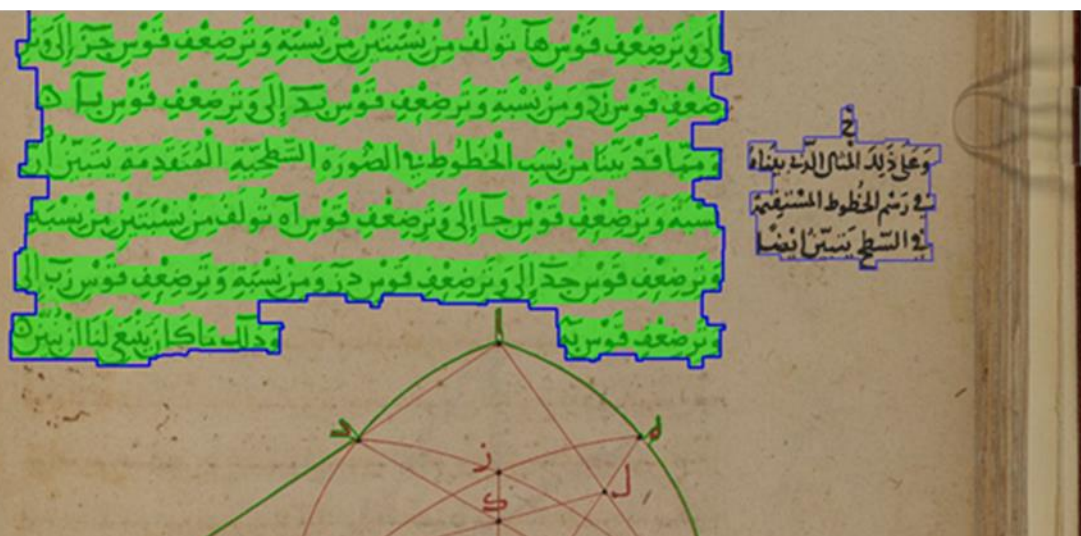 إلى وتر ضعف قوس ها تولف من نسبتين من نسبة وتر ضعف قوس جز إلى وتر
ضعف قوس زد ومن نسبة وتر ضعف قوس بد إلى وتر ضعف قوس با
قد بينا من نسب الخطوط في الصورة السطحية المتقدمة يتبين أن
نسبة وتر ضعف قوس جا إلى وتر ضعف قوس اه تولف من نسبتين من نسبة
وتر ضعف قوس جد إلى وتر ضعف قوس دز ومن نسبة وتر ضعف قوس زب إلى
وتر ضعف قوس به وذلك ما كان ينبغي لنا أن نبين
خ
وعلى ذلك المثال الذي بيناه
في رسم الخطوط المستقيمة
في السطح يتبين أيضا
ا
ز
ل